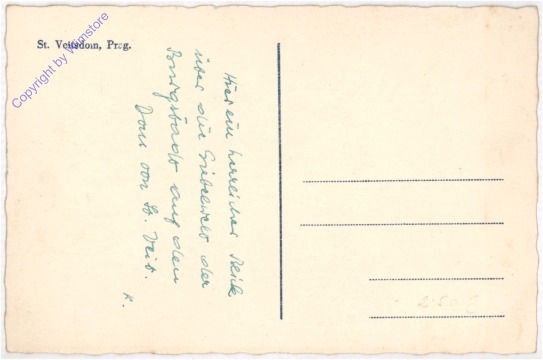 St. Veitsdom, Prag.
Copyright by Wamstore
Hier ein herrlicher Blick
über die Giebelwelt der
Königsstadt auf den
Dom von St. Veit.
K.
2.50 €